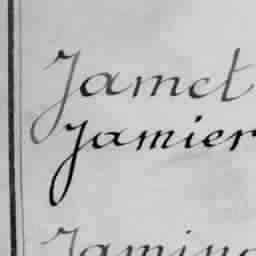 Jamet
Jamier